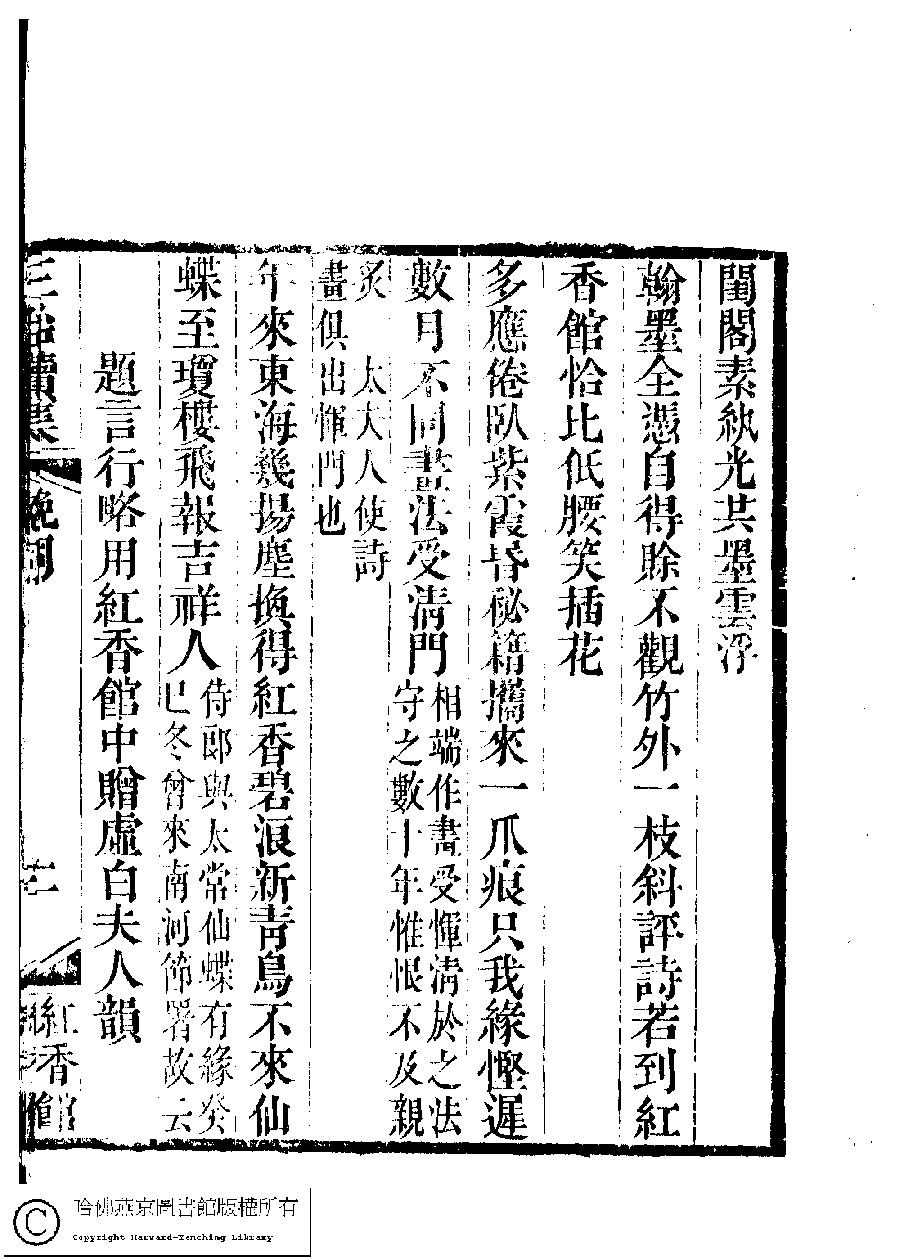 閨閣素紈光共墨雲浮
翰墨全憑自得賖不觀竹外一枝斜評詩若到紅
香館恰比低腰笑插花
多應倦臥紫霞昏秘籍攜來一爪痕只我緣慳遲
數月不同畫法受清門
相端作畫受惲清於之法
守之數十年惟恨不及親
炙　太夫人使詩
畫俱出惲門也
年來東海幾揚塵換得紅香碧浪新青鳥不來仙
蝶至瓊樓飛報吉祥人
侍郎與太常仙蝶有緣癸
巳冬曾來南河節署故云
題言行略用紅香館中贈虛白夫人韻
輓詞
二
紅香館
哈佛燕京圖書館版權所有
Copyright Harvard-Yenching Library